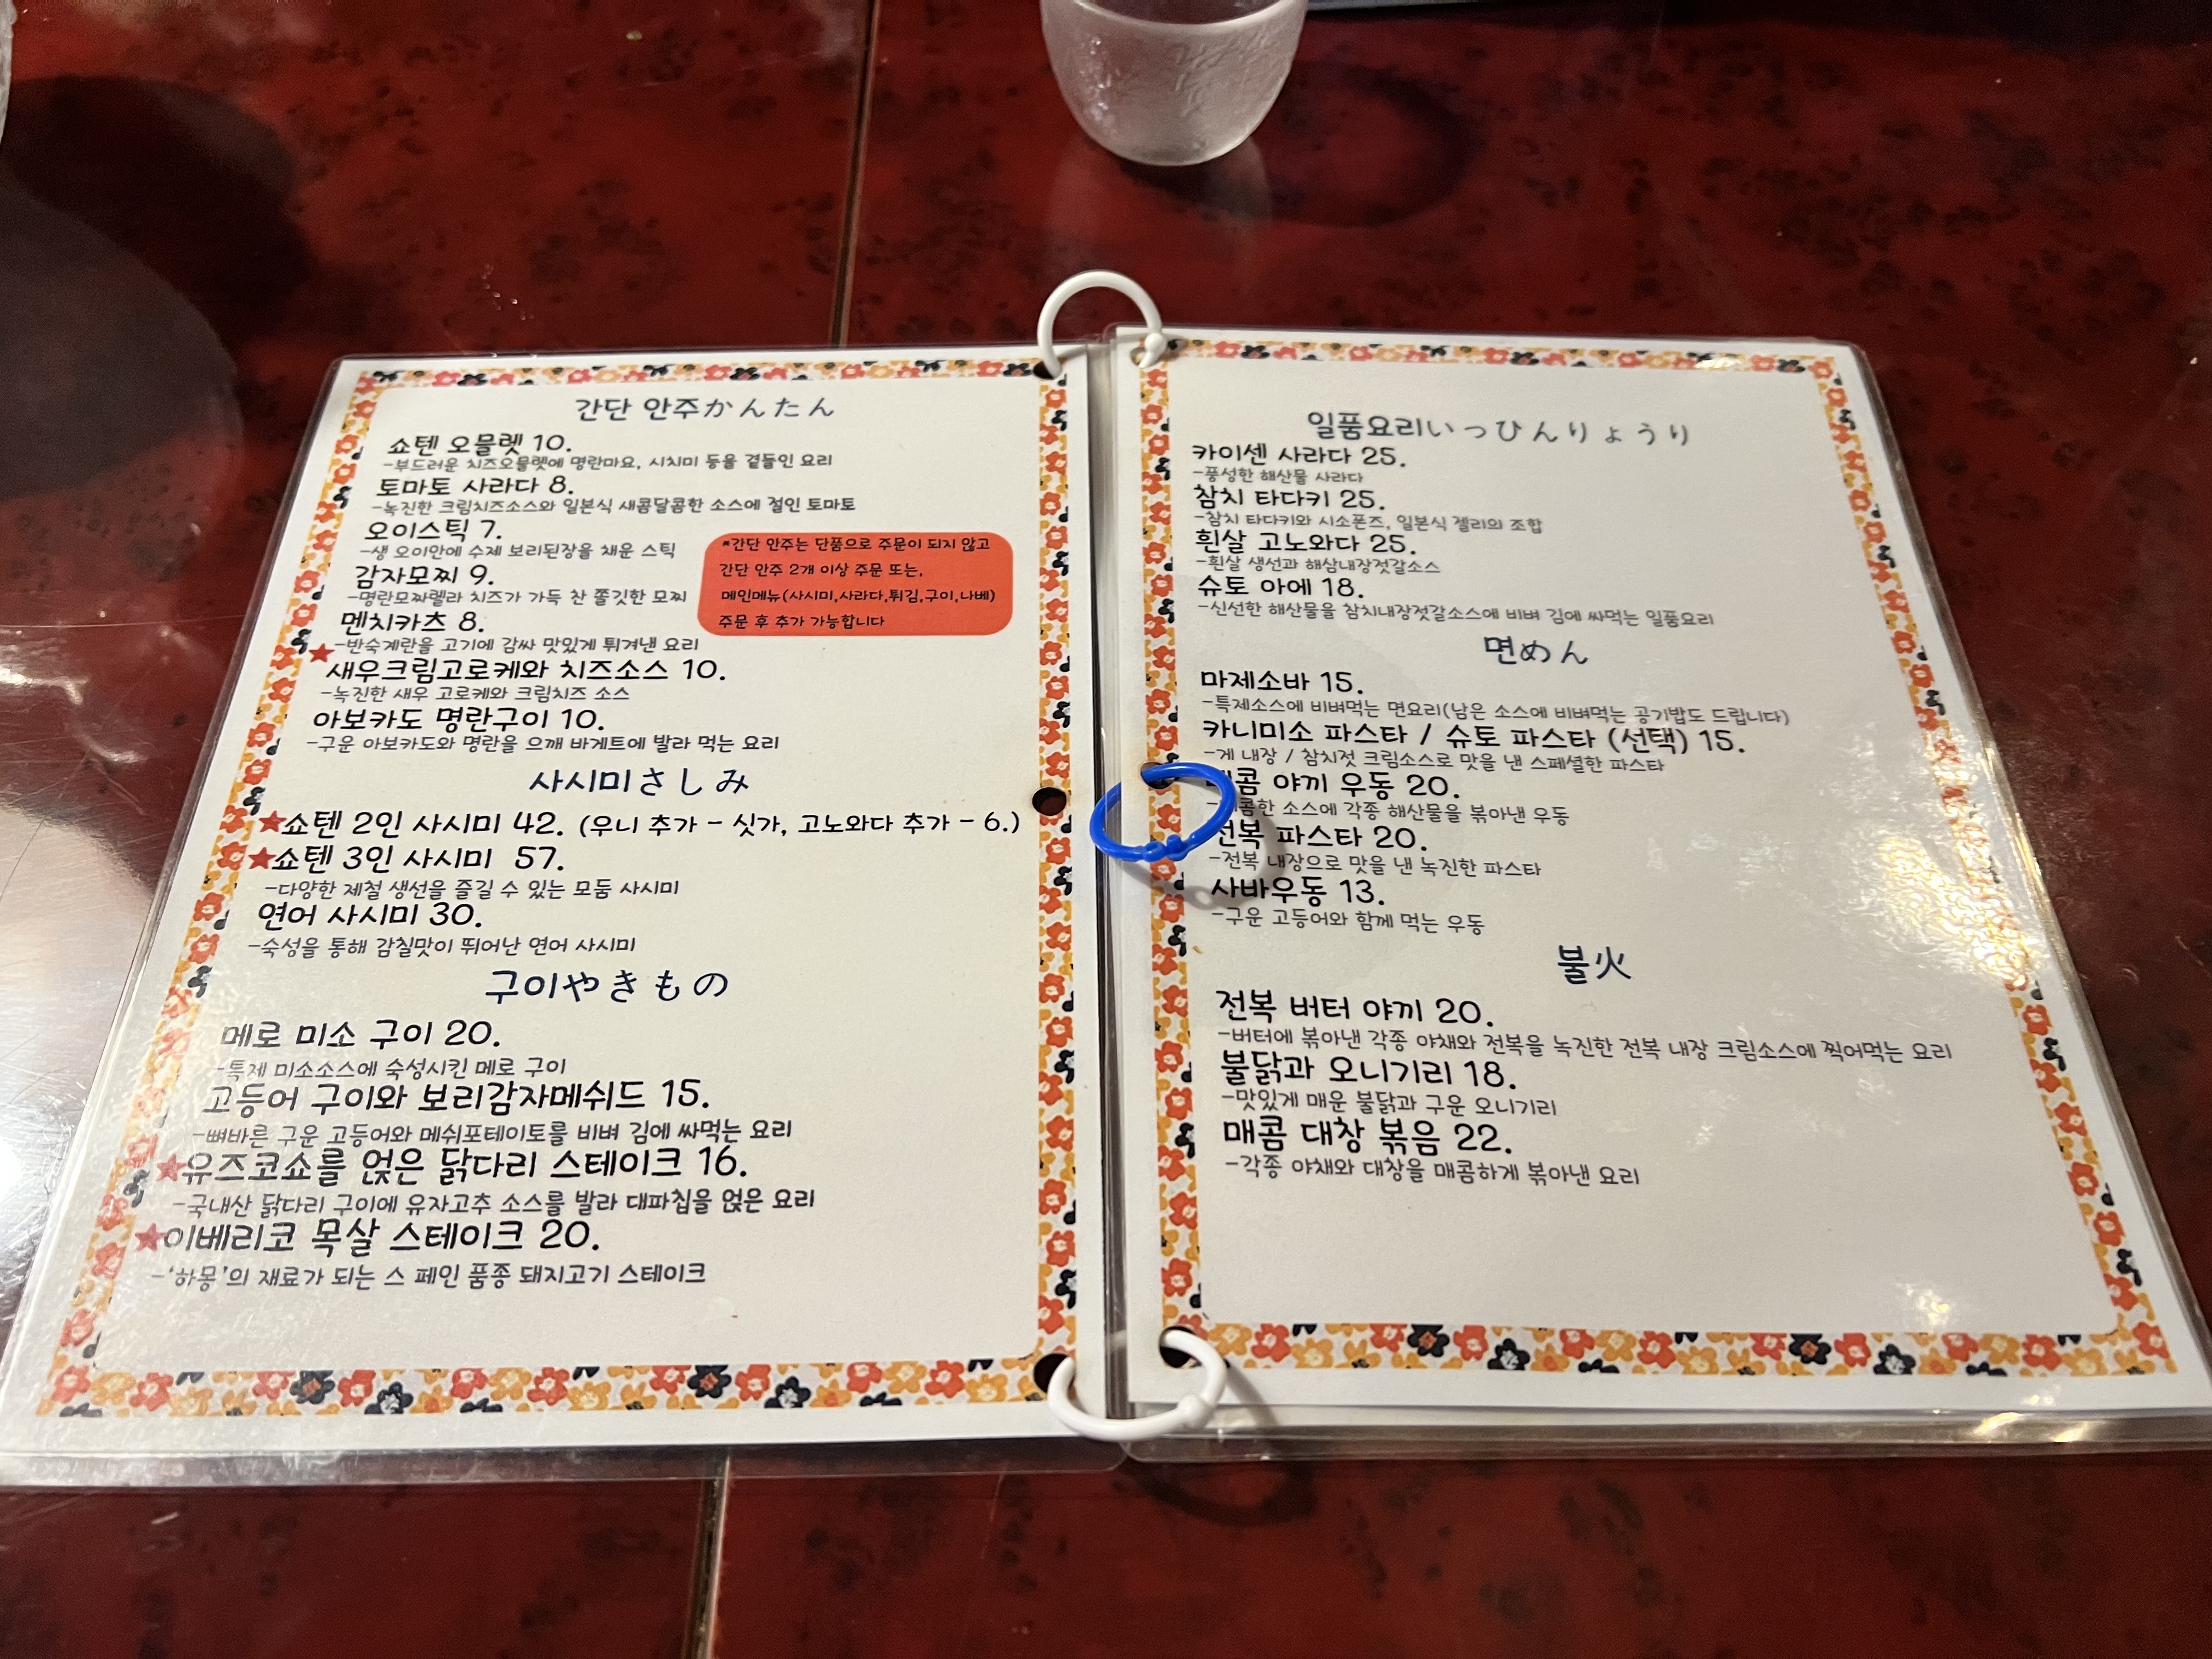 간단 안주かんたん
쇼텐 오믈렛 10.
-부드러운 치즈오믈렛에 명란마요, 시치미 등을 곁들인 요리
토마토 사라다 8.
-녹진한 크림치즈소스와 일본식 새콤달콤한 소스에 절인 토마토
오이스틱 7.
-생 오이안에 수제 보리된장을 채운 스틱
감자모찌 9.
-명란모짜렐라 치즈가 가득 찬 쫄깃한 모찌
멘치카츠 8.
-반숙계란을 고기에 감싸 맛있게 튀겨낸 요리
*간단 안주는 단품으로 주문이 되지 않고
간단 안주 2개 이상 주문 또는,
메인메뉴(사시미,사라다,튀김,구이,나베)
주문 후 추가 가능합니다
★새우크림고로케와 치즈소스 10.
-녹진한 새우 고로케와 크림치즈 소스
아보카도 명란구이 10.
-구운 아보카도와 명란을 으깨 바게트에 발라 먹는 요리
사시미さしみ
★쇼텐 2인 사시미 42. (우니 추가 - 싯가, 고노와다 추가 - 6.)
★쇼텐 3인 사시미 57.
-다양한 제철 생선을 즐길 수 있는 모둠 사시미
연어 사시미 30.
-숙성을 통해 감칠맛이 뛰어난 연어 사시미
구이やきもの
메로 미소 구이 20.
-특제 미소소스에 숙성시킨 메로 구이
고등어 구이와 보리감자메쉬드 15.
-뼈바른 구운 고등어와 메쉬포테이토를 비벼 김에 싸먹는 요리
★유즈코쇼를 얹은 닭다리 스테이크 16.
-국내산 닭다리 구이에 유자고추 소스를 발라 대파칩을 얹은 요리
★이베리코 목살 스테이크 20.
-'하몽'의 재료가 되는 스 페인 품종 돼지고기 스테이크
일품요리いっひんりょうり
카이센 사라다 25.
-풍성한 해산물 사라다
참치 타다키 25.
-참치 타다키와 시소폰즈, 일본식 젤리의 조합
흰살 고노와다 25.
-흰살 생선과 해삼내장젓갈소스
슈토 아에 18.
-신선한 해산물을 참치내장젓갈소스에 비벼 김에 싸먹는 일품요리
면めん
마제소바 15.
-특제소스에 비벼먹는 면요리(남은 소스에 비벼먹는 공기밥도 드립니다)
카니미소 파스타 / 슈토 파스타 (선택) 15.
-게 내장 / 참치젓 크림소스로 맛을 낸 스페셜한 파스타
매콤 야끼 우동 20.
-매콤한 소스에 각종 해산물을 볶아낸 우동
전복 파스타 20.
-전복 내장으로 맛을 낸 녹진한 파스타
사바우동 13.
-구운 고등어와 함께 먹는 우동
불火
전복 버터 야끼 20.
-버터에 볶아낸 각종 야채와 전복을 녹진한 전복 내장 크림소스에 찍어먹는 요리
불닭과 오니기리 18.
-맛있게 매운 불닭과 구운 오니기리
매콤 대창 볶음 22.
-각종 야채와 대창을 매콤하게 볶아낸 요리